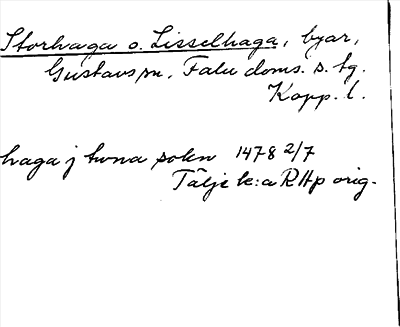 Storhaga o. Lisselhaga, byar,
Gustavs sn. Falu doms. s. tg.
Kopp. l.
haga j tuna sokn 1478 2/7
Tälje k:a RAp orig.